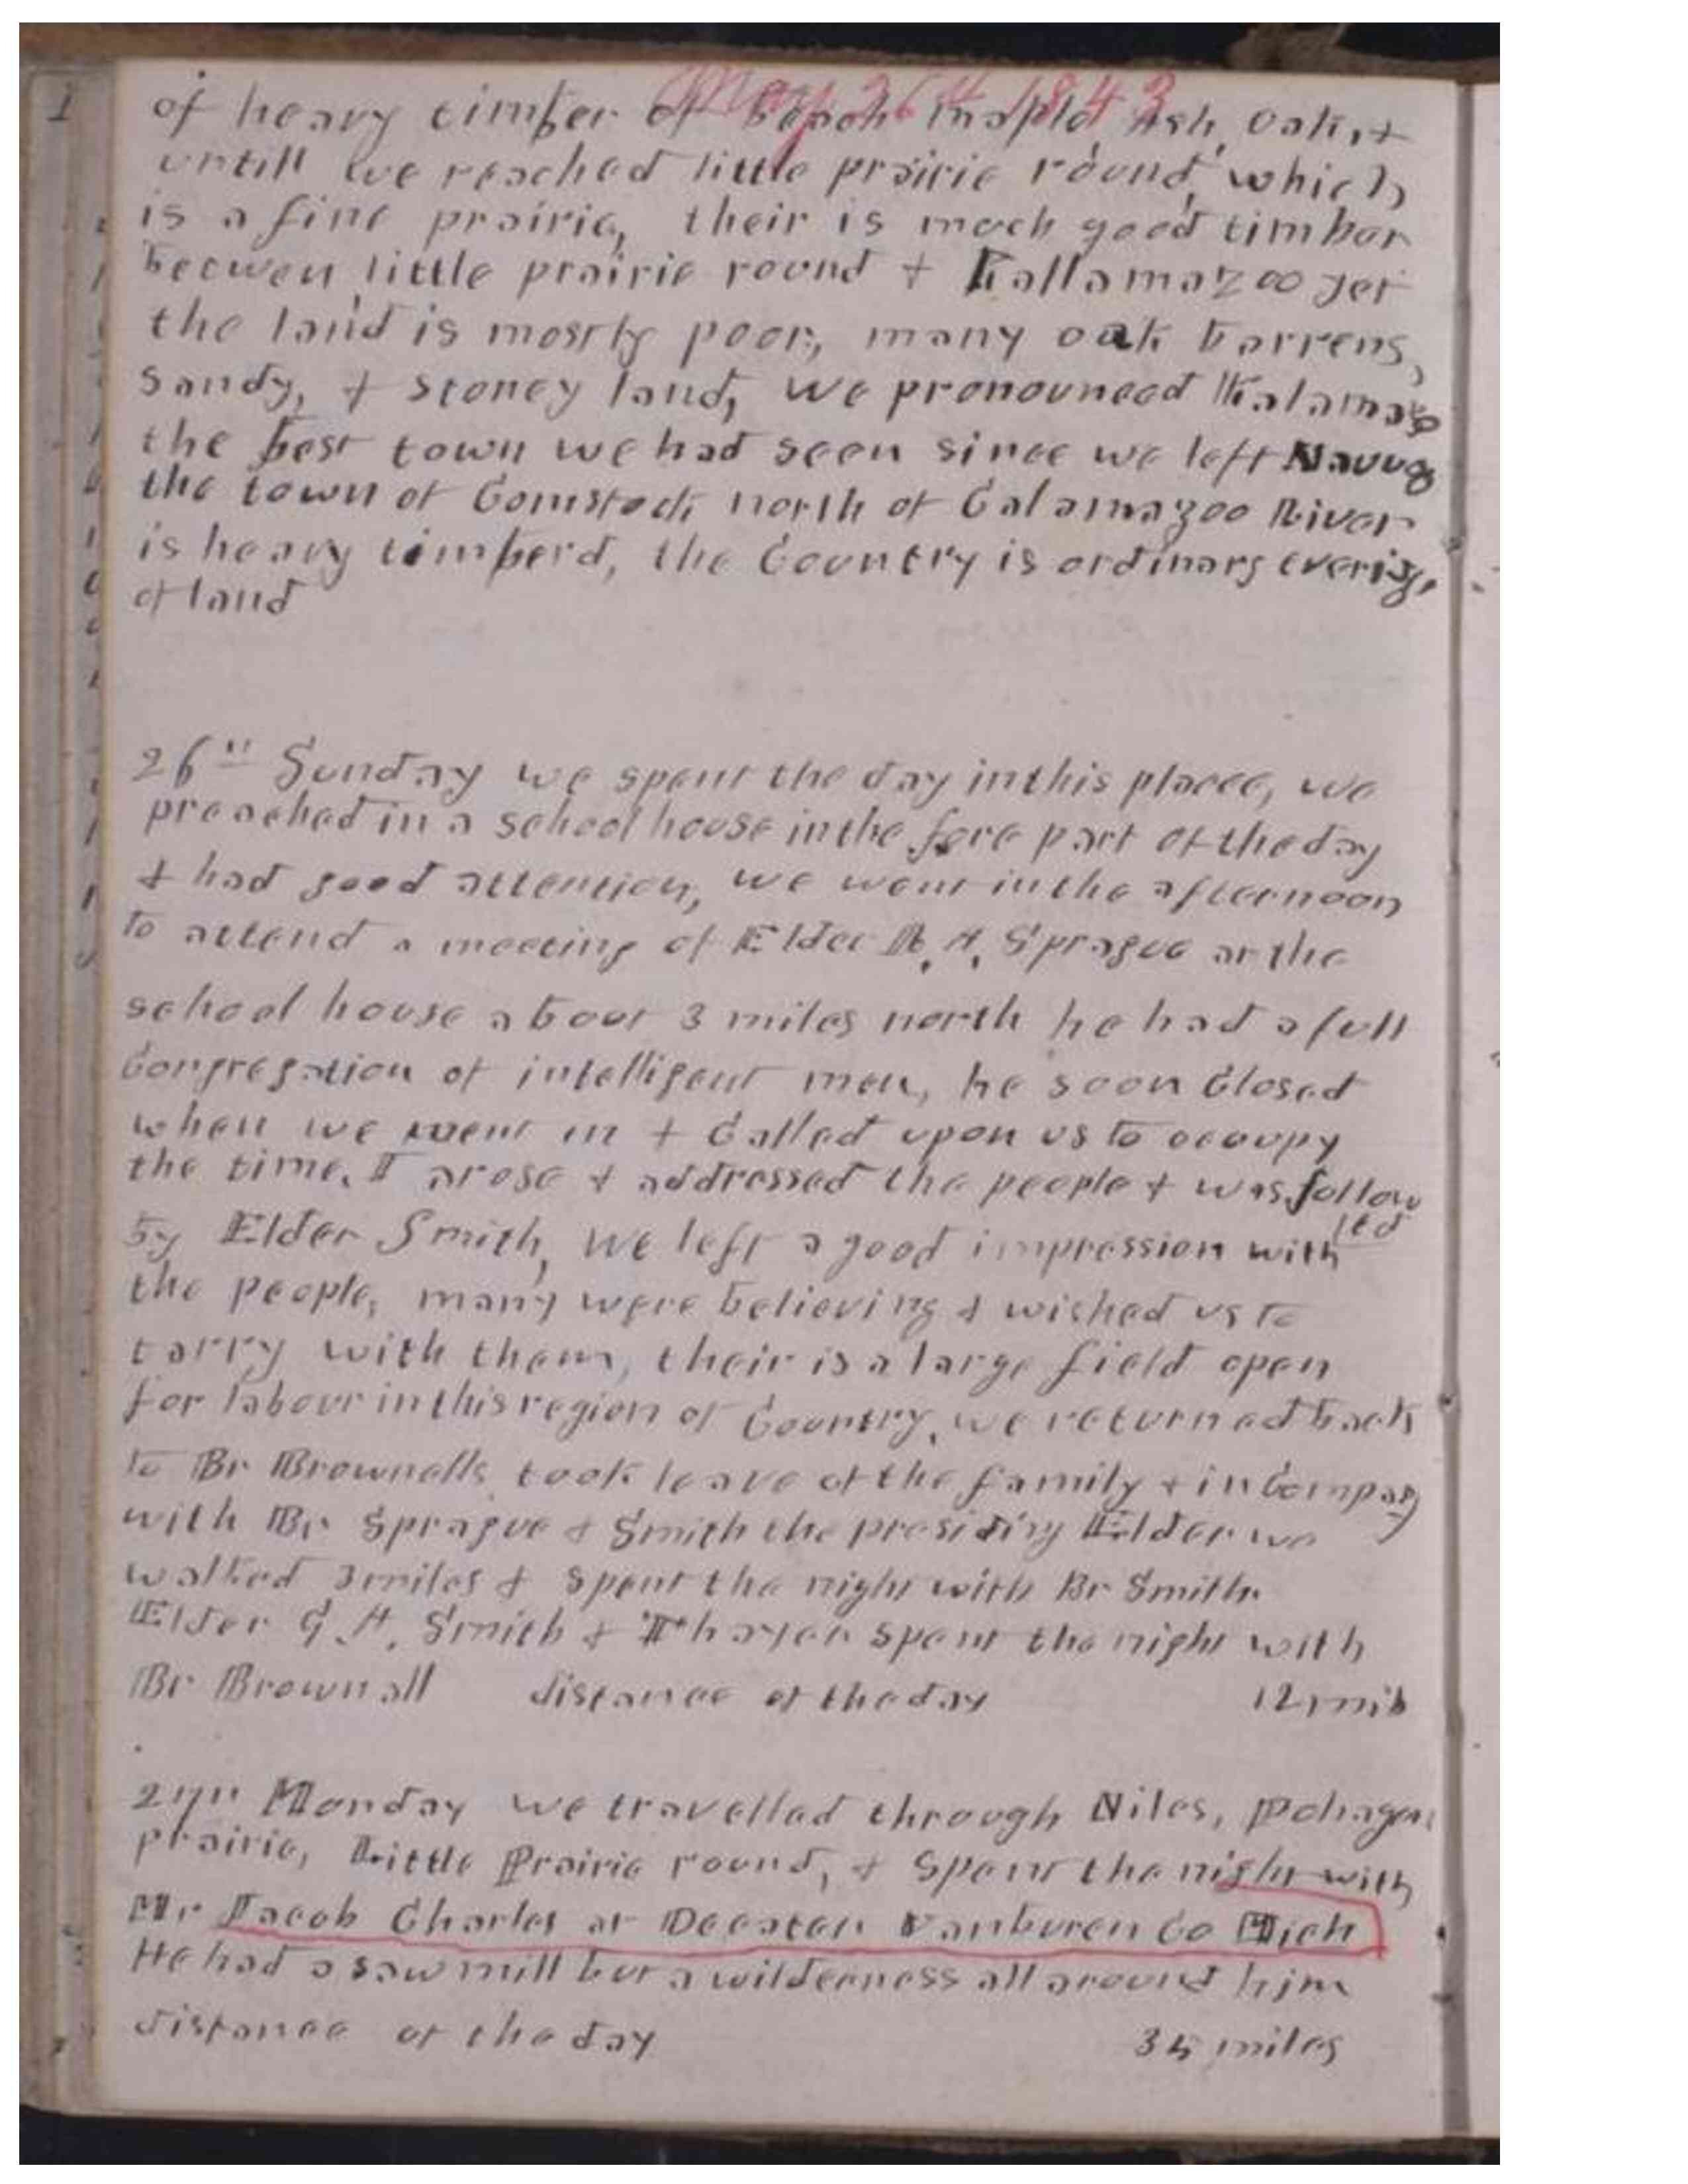 May 26th 1843
of heavy timber of beach maple Ash, Oak, +
untill we reached little prairie round, which
is a fine prairie, their is much good timber
between little prairie round + Kallamazoo yet
the land is mostly poor, many oak barrens,
sandy, + stoney land, we pronounced Kalamazo
the best town we had seen since we left Nauvoo
the town of Comstock north of Calamazoo River
is heavy timberd, the Country is ordinary
of land
26th Sunday we spent the day in this place, we
preached in a school house in the fore part of the day
+ had good attention, we went in the afternoon
to attend a meeting of Elder A. Sprague at the
school house about 3 miles north he had a full
Congregation of intelligent men, he soon Closed
when we went in + Called upon us to occupy
the time. I arose + addressed the people + was follow
ed
by Elder Smith, we left a good impression with
the people, many were believing + wished us to
tarry with them, their is a large field open
for labour in this region of Country, we returned back
to Br Brownells took leave of the family + in Company
with Br Sprague + Smith the presiding Elder we
walked 3 miles + spent the night with Br Smith.
Elder G A. Smith + Thayer spent the night with
Br Brownall distance of the day 12 mils
27th Monday we travelled through Niles, Pohagen
prairie, Little Prairie round, + spent the night with
Mr Jacob Charles at Decaten Vanburen Co Mich
He had a saw mill but a wilderness all around him
distance of the day 35 miles